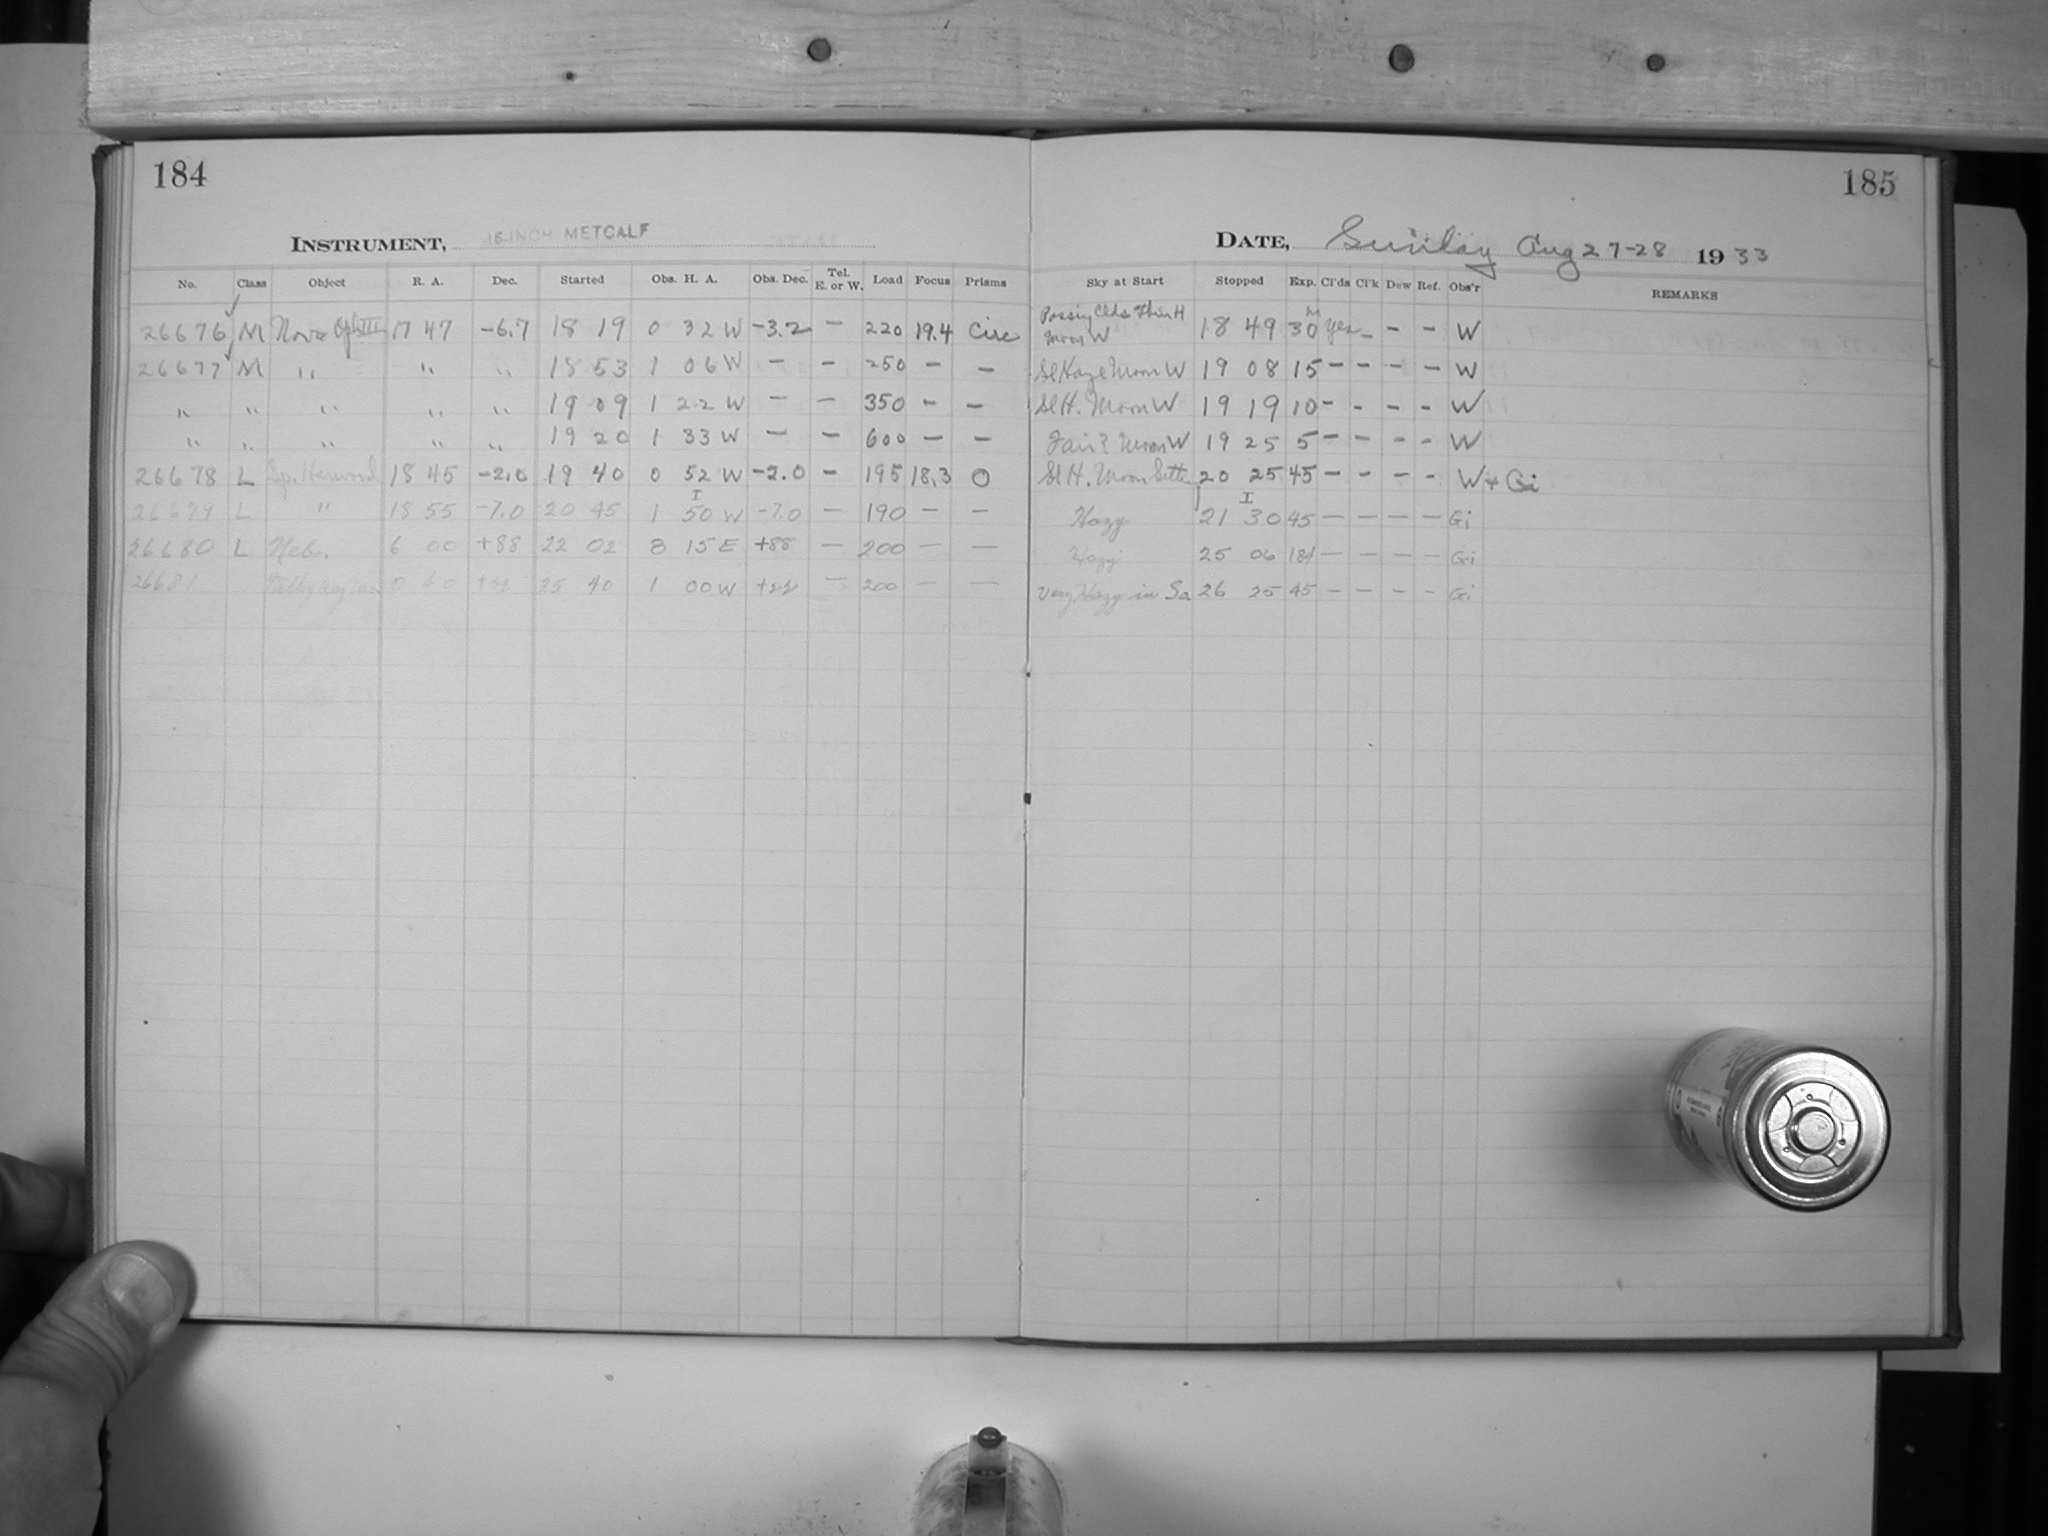 184
INSTRUMENT, 16-INCH METCALF
No. Class Object R. A. Dec. Started Obs. H. A. Obs. Dec. Tel. E. or W. Load Focus Prisms
26676 M Nova 17 47 -6.7 18 19 0 32 W -3.2 - 220 19.4 Circ
26677 M " " " 18 53 1 06 W - - 250 - -
" " " " " 19 09 1 22 W - - 350 - -
" " " " " 19 20 1 33 W - - 600 - -
26678 L Sp. Harwood 18 45 -2.0 19 40 0 52 W -2.0 - 195 18.3 O
26679 L " 18 55 -7.0 20 45 1 50 W -7.0 - 190 - -
26680 L Neb. 6 00 +88 22 02 8 15 E +88 - 200 - -
26681 Milky Way 0 40 25 40 1 00 W - 200 - -
185
DATE, Sunday Aug 27-28 1933
Sky at Start Stopped Exp. Cl'ds Cl'k Dew Ref. Obs'r REMARKS
Passing Clds Thin H
Moon W 18 49 30 Yes - - - W
Sl Haze Moon W 19 08 15 - - - - W
Sl H. Moon W 19 19 10 - - - - W
Fair? Moon W 19 25 5 - - - - W
Sl H. Moon 20 25 45 - - - - W + Gi
Hazy 21 30 45 - - - - Gi
Hazy 25 06 184 - - - - Gi
Very Hazy in 26 25 45 - - - - Gi